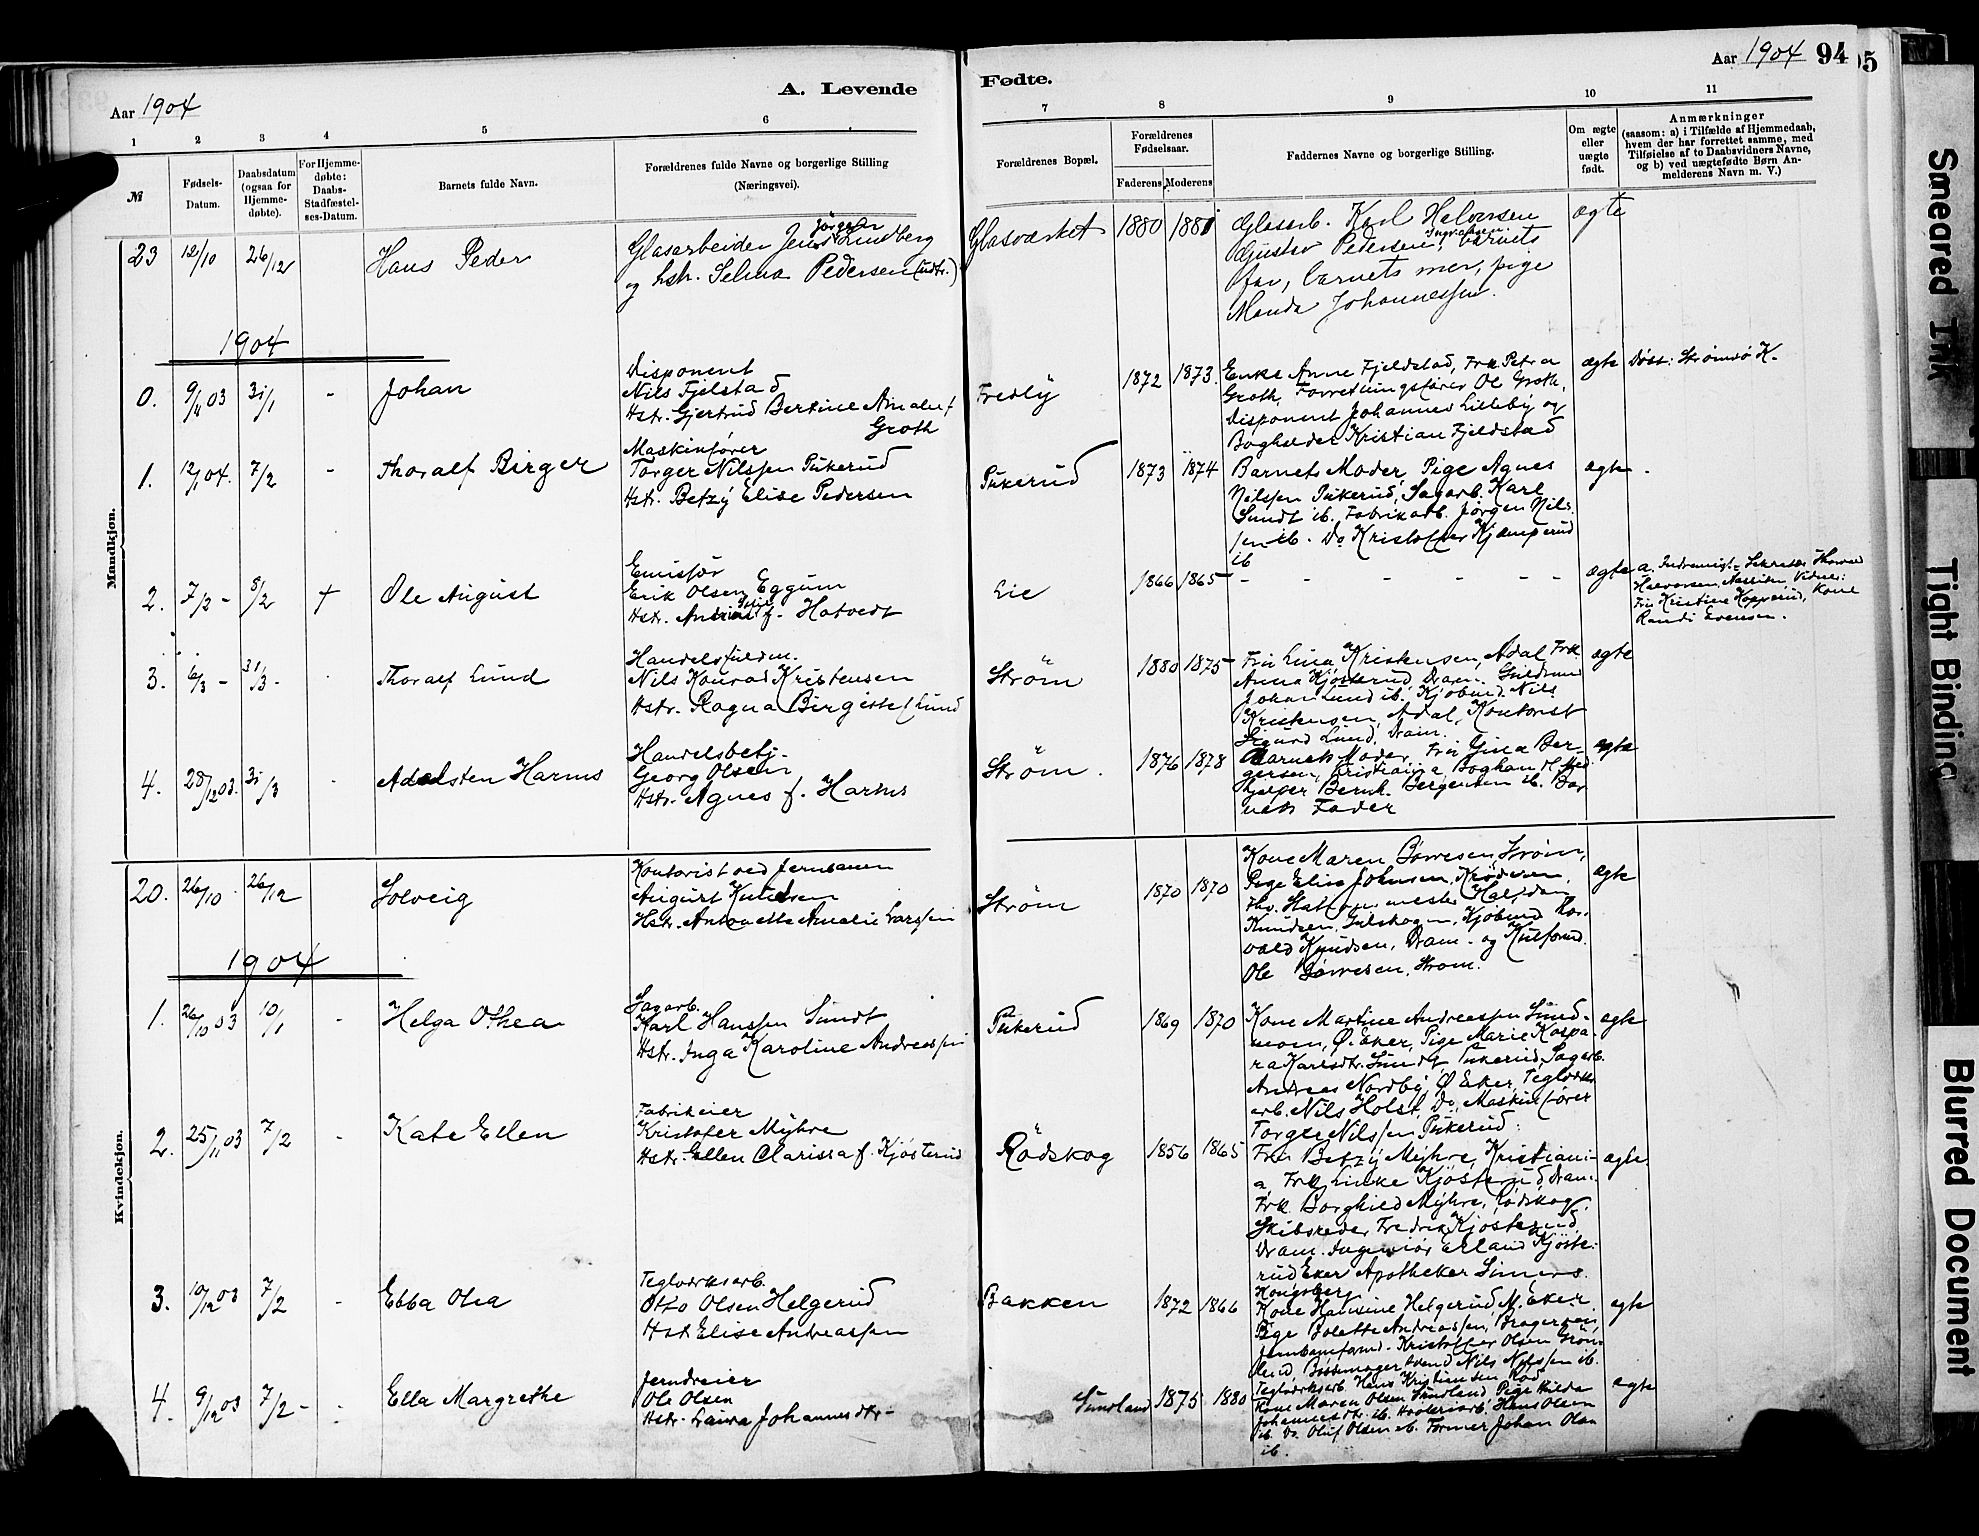 Aar 1904
A. Levende
Fødte.
Aar 1904 94
95
1 2 3 4 5 6 7 8 9 10 11
№
Fødsels-
Datum.
Daabsdatum
(ogsaa for
Hjemme-
døbte).
For Hjemme-
døbte:
Daabs-
Stadfæstel-
ses-Datum.
Barnets fulde Navn.
Forældrenes fulde Navne og borgerlige Stilling
(Næringsvei).
Forældrenes Bopæl.
Forældrenes
Fødselsaar.
Faderens. Moderens
Faddernes Navne og borgerlige Stilling.
Om ægte
eller
uægte
født.
Anmærkninger
(saasom: a) i Tilfælde af Hjemmedaab,
hvem der har forrettet samme, med
Tilføielse af to Daabsvidners Navne,
og b) ved uægtefødte Børn An-
melderens Navn m. V.)
Mandkjøn.
23 12/10 26/12 Hans Peder
Glasarbeider Jens Jörgen Lundberg
og hstr. Selma Pedersen (udtr.)
Glasværket 1880 1881
Glasarb. Karl Halvorsen
Gustav Pedersen, Barnets
far, barnets mor, pige
Manda Johannessen.
ægte
1904
0. 9/4 03 31/1 - Johan
Disponent
Nils Fjelstad
Hstr. Gjertrud Bertine Amalie f
Groth
Fredly 1872 1873.
Enke Anne Fjeldstad, Frk Petra
Groth, Forretningsfører Ole Groth,
Disponent Johannes Lilleby og
Bogholder Kristian Fjeldstad
ægte Døbt: Strømsö K.
1. 12/1 04. 7/2 - Thoralf Birger
Maskinfører
Torger Nilssen Pukerud
Hstr. Betzy Elise Pedersen
Pukerud 1873 1874
Barnets Moder, Pige Agnes
Nilssen Pukerud, Sagarb. Karl
Sundt ib. Fabrikarb. Jørgen Nils-
sen ib. Do Kristoffer Kjæmperud
ib
ægte
2. 7/2 - 8/2 + Ole August
Emissær
Erik Olsen Eggum
Hstr. f. Hotvedt
Lie 1866 1865 - - - - - -
ægte a. Thorvald
Halvorsen, Vidner:
Fru Kristine Kopperud, Kone
Randi Evensen.
3. 6/3 - 31/3 - Thoralf Lund
Handelsfuldm.
Nils Konrad Kristensen
Hstr. Ragna Birgitte f Lund
Strøm 1880 1875
Fru Lina Kristensen, Adal, Frk.
Anna Kjösterud, Dram. Guldsm
Johan Lund ib. Kjøbmd. Nils
Kristensen, Adal, Kontorist
Sigurd Lund, Dram.
ægte
4. 28/12 03. 31/3 Adelsten Harms
Handelsbetj.
Georg Olsen
Hstr. Agnes f. Harms
Strøm. 1876 1878
Barnets Moder, Fru Gina Ber-
gersen, Kristiania, Boghandl. Med-
hjelper Bernh. Bergersen ib. Bar
nets Fader
ægte
Kvindekjøn.
20. 26/10 26/12 Solveig
Kontorist ved Jernbanen
August Knudsen
Hstr. Antonette Amalie Larssen
Strøm 1870 1870
Kone Maren Børresen, Strøm,
Pige Elise Johnsen, Krøderen,
fhv. Halfdan
Knudsen, Gulskogen, Kjøbmd Ro-
vald Knudsen, Dram. og
Ole Børresen, Strøm.
ægte
1904
1. 26/10 03 10/1 - Helga Othea
Sagarb.
Karl Hanssen Sundt
Hstr. Inga Karoline Andreassen
Pukerud 1869 1870
Kone Martine Andreassen Sund-
moen, Ø. Eker, Pige Marie Kaspa-
ra Karlsdtr. Sundt Pukerud, Sagarb.
Andreas Nordby, Ø Eker, Teglværks
arb. Nils Holst, Do, Maskinfører
Torger Nilssen Pukerud.
ægte
2. 25/11 03 7/2 - Kate Ellen
Fabrikeier
Kristofer Myhre
Hstr. Ellen Clarissa f. Kjösterud
Rödskog 1856 1865
Fru Betzy Myhre, Kristiani-
a, Frk. Linke Kjösterud, Dram.
Frk. Borghild Myhre, Rödskog,
Skibsreder Fredrik Kjösterud,
Dram. Ingeniør Erland Kjöste-
rud Eker, Apotheker Simers
Kongsberg
ægte
3. 10/12 03 7/2 - Ebba Olea
Teglværksarb.
Otto Olsen Helgerud
Hst Elise Andreassen
Bakken 1872 1866
Kone Hansine Helgerud, M. Eker,
Pige Bolette Andreassen, Bragernæs,
Kristoffer Olsen Grön-
lund, Bössemagersvend Nils Nilssen ib.
Teglværksarb. Hans Kristiansen Rød
ægte
4. 9/12 03 7/2 - Ella Margrethe
Jerndreier
Ole Olsen
Hstr. Laura Johannesdtr.
Sundland 1875 1880
Kone Maren Olsen Sundland, Pige Hilda
Johannesdtr. ib. Høvleriarb. Hans Olsen
ib. Do. Oluf Olsen ib. Former Johan Olsen
ib.
ægte
Smeared Ink
Tight Binding
Blurred Document